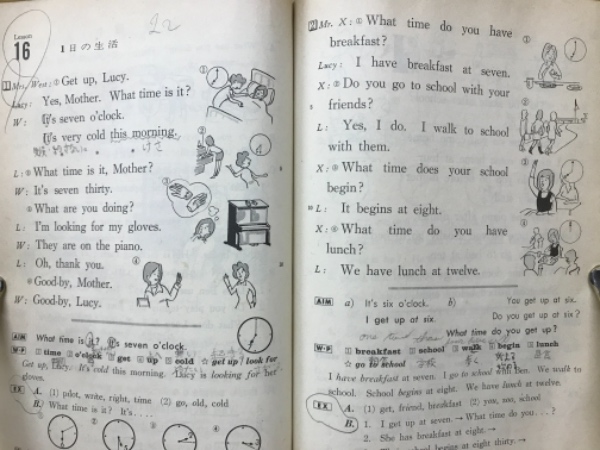 Lesson
16
1日の生活
22
1 Mrs. West: ① Get up, Lucy.
Lucy: Yes, Mother. What time is it?
W: It's seven o'clock.
It's very cold this morning.
けさ
L: ② What time is it, Mother?
W: It's seven thirty.
③ What are you doing?
L: I'm looking for my gloves.
W: They are on the piano.
L: Oh, thank you.
④ Good-by, Mother.
W: Good-by, Lucy.
AIM What time is it? It's seven o'clock.
W-P 1 time 2 o'clock 3 get 4 up 5 cold ☆ get up / look for
Get up, Lucy. It's cold this morning. Lucy is looking for her
gloves.
EX A. (1) pdet, write, right, time (2) go, old, cold
B. What time is it? It's....
① ② ③ ④
2 Mr. X: ① What time do you have
breakfast?
Lucy: I have breakfast at seven.
X: ② Do you go to school with your
friends?
L: Yes, I do. I walk to school
with them.
X: ③ What time does your school
begin?
L: It begins at eight.
X: ④ What time do you have
lunch?
L: We have lunch at twelve.
AIM a) It's six o'clock. b) You get up at six.
I get up at six. Do you get up at six?
What time do you get up?
W-P 1 breakfast 2 school 3 walk 4 begin 5 lunch
☆ go to school 学校
I have breakfast at seven. I go to school with Ben. We walk to
school. School begins at eight. We have lunch at twelve.
EX A. (1) get, friend, breakfast (2) you, too, school
B. 1. I get up at seven. → What time do you...?
2. She has breakfast at eight. →
begins at eight thirty. →